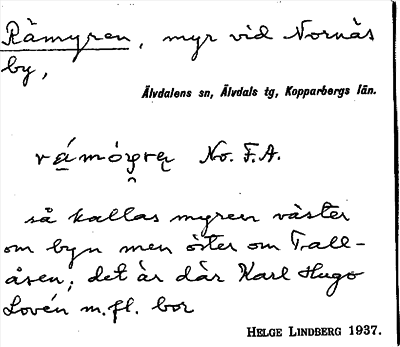 Rämyren, myr vid Nornäs
by,
Älvdalens sn, Älvdals tg, Kopparbergs län.
No. F.A.
så kallas myren väster
om byn men öster om Tall-
åsen; det är där Karl Hugo
Lovén m.fl. bor
HELGE LINDBERG 1937.